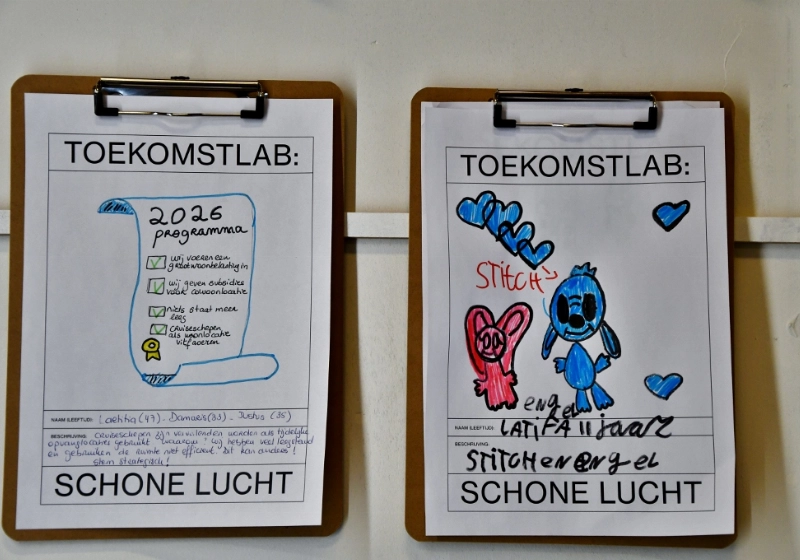 TOEKOMSTLAB:
2026
programma
wij voeren een
grootwoonbelasting in
wij geven subsidies
voor cowoonlocatie
niets staat meer
leeg
cruiseschepen
als woonlocatie
uitfaseren
NAAM (LEEFTIJD): Laetitia (47) - Damaris (33) - Justus (35)
BESCHRIJVING: Cruiseschepen zijn vervuilend worden als tijdelijke
opvanglocaties gebruikt. Waarom? Wij hebben veel leegstand
en gebruiken de ruimte niet efficient. Dit kan anders!
Stem strategisch!
SCHONE LUCHT
TOEKOMSTLAB:
STITCH
engel
NAAM (LEEFTIJD): LATIFA 11 jaar
BESCHRIJVING:
STITCH en engel
SCHONE LUCHT